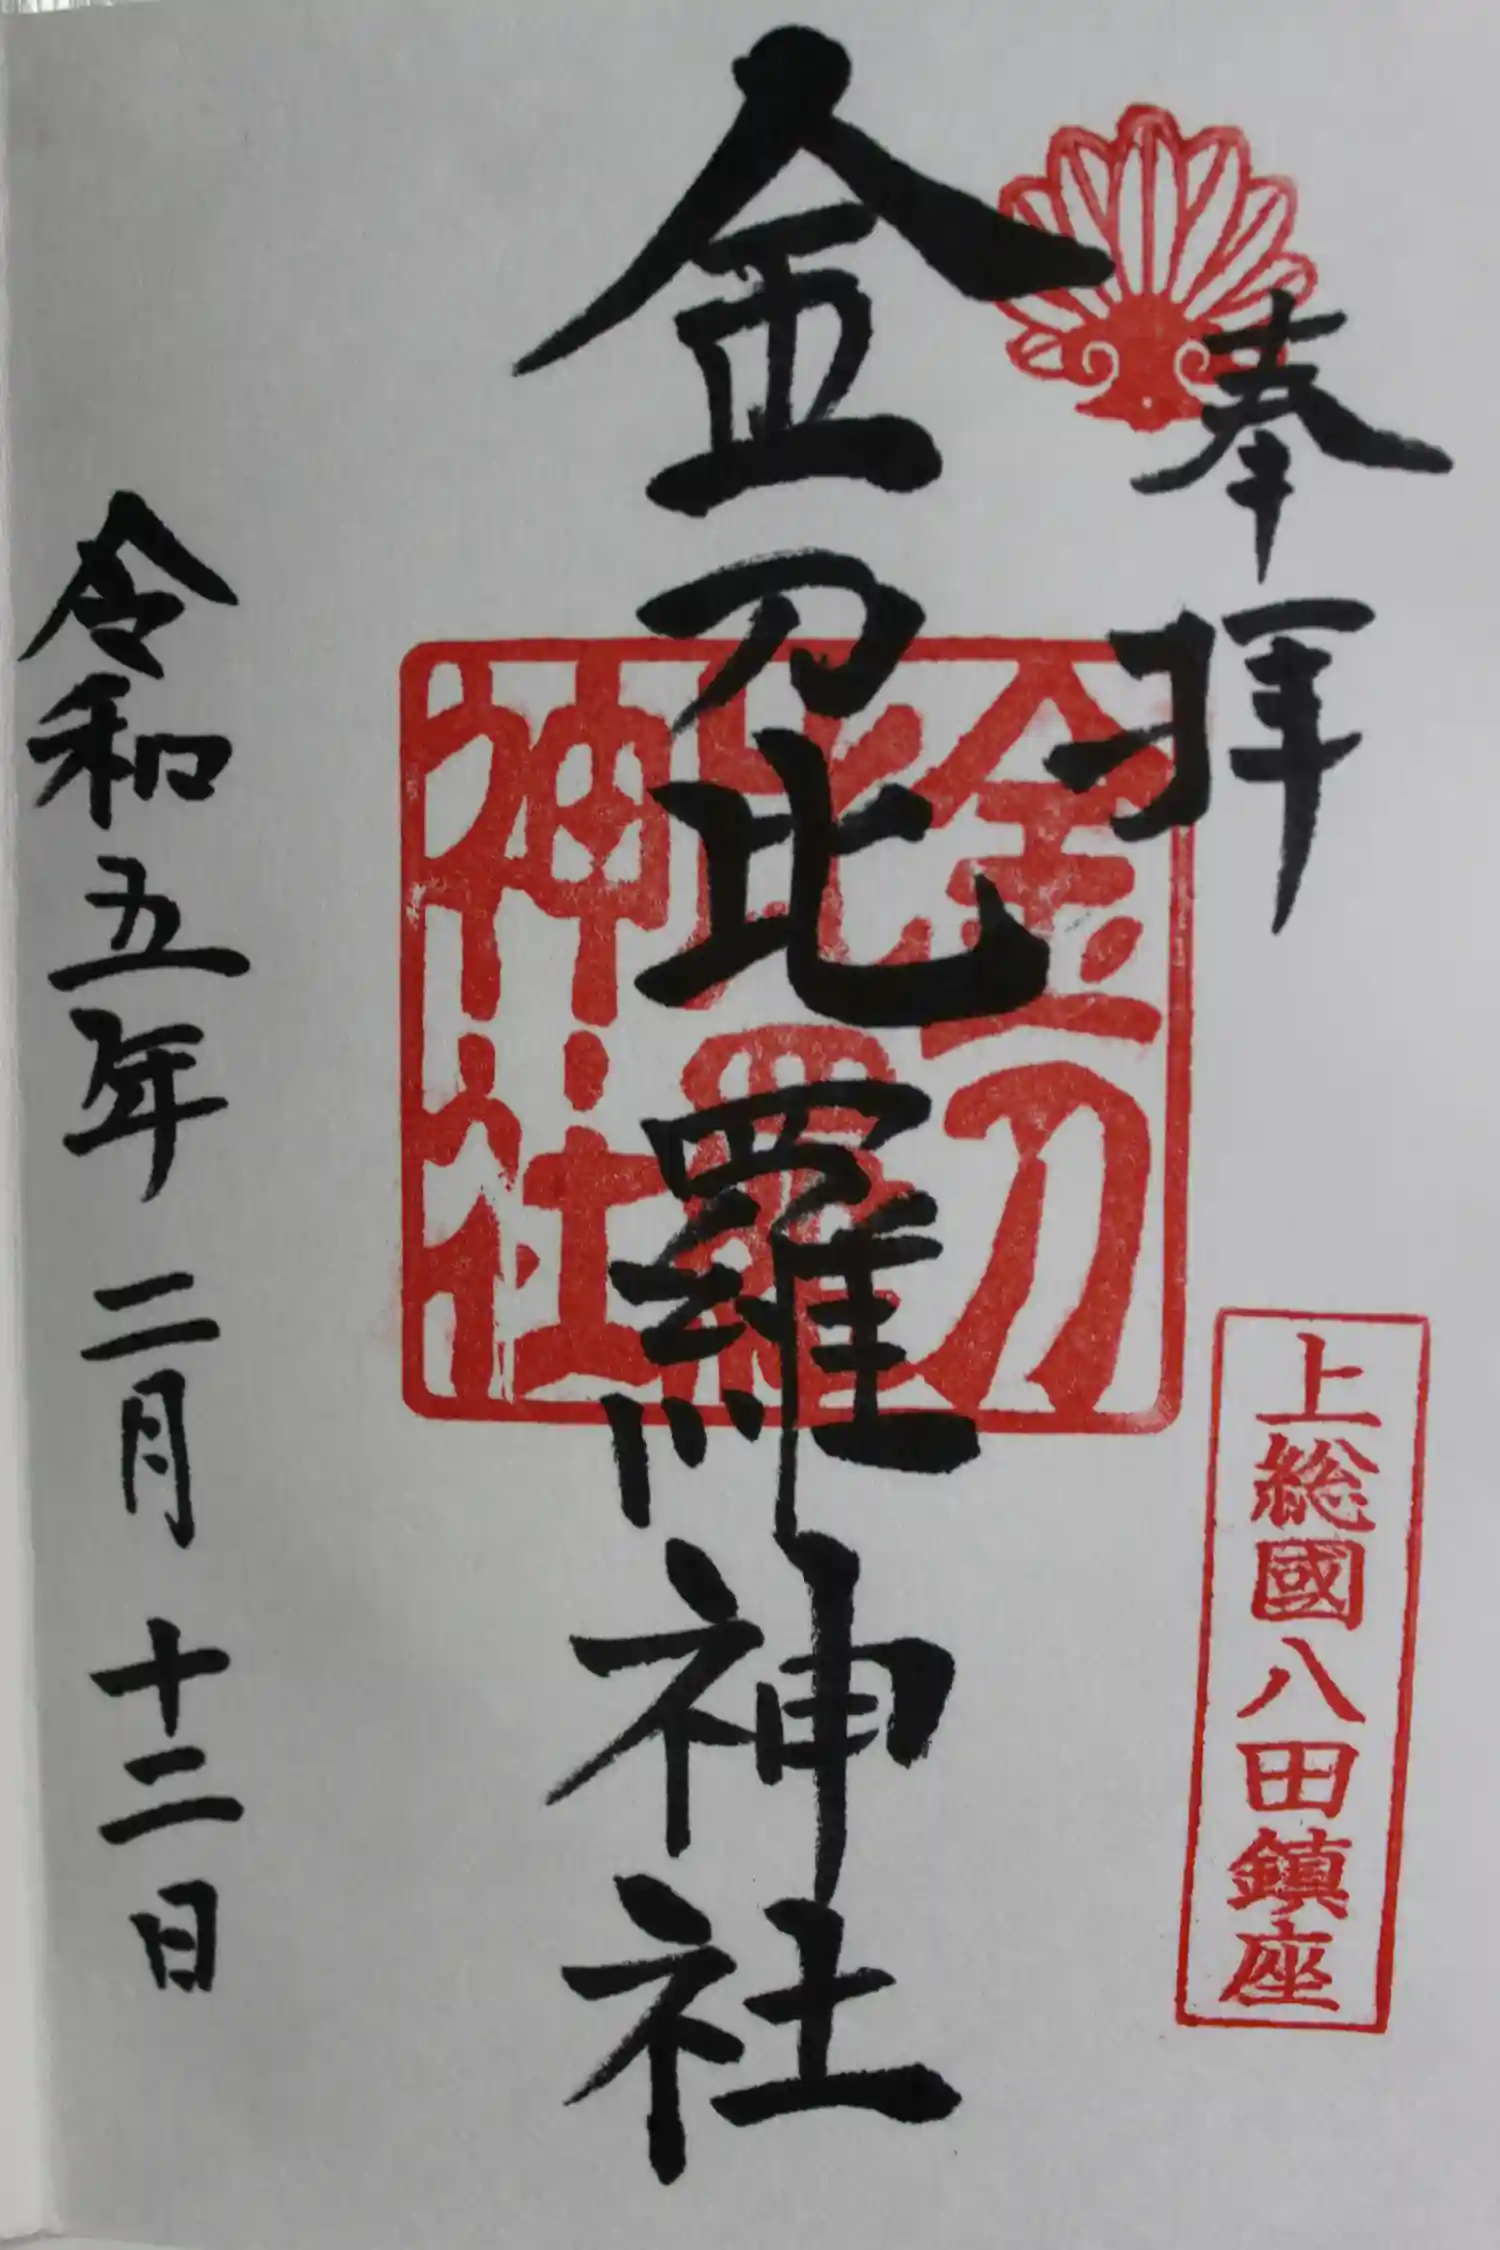 奉拝
上総國八田鎮座
金刀比羅神社
金刀
比羅
神社
令和五年二月十二日